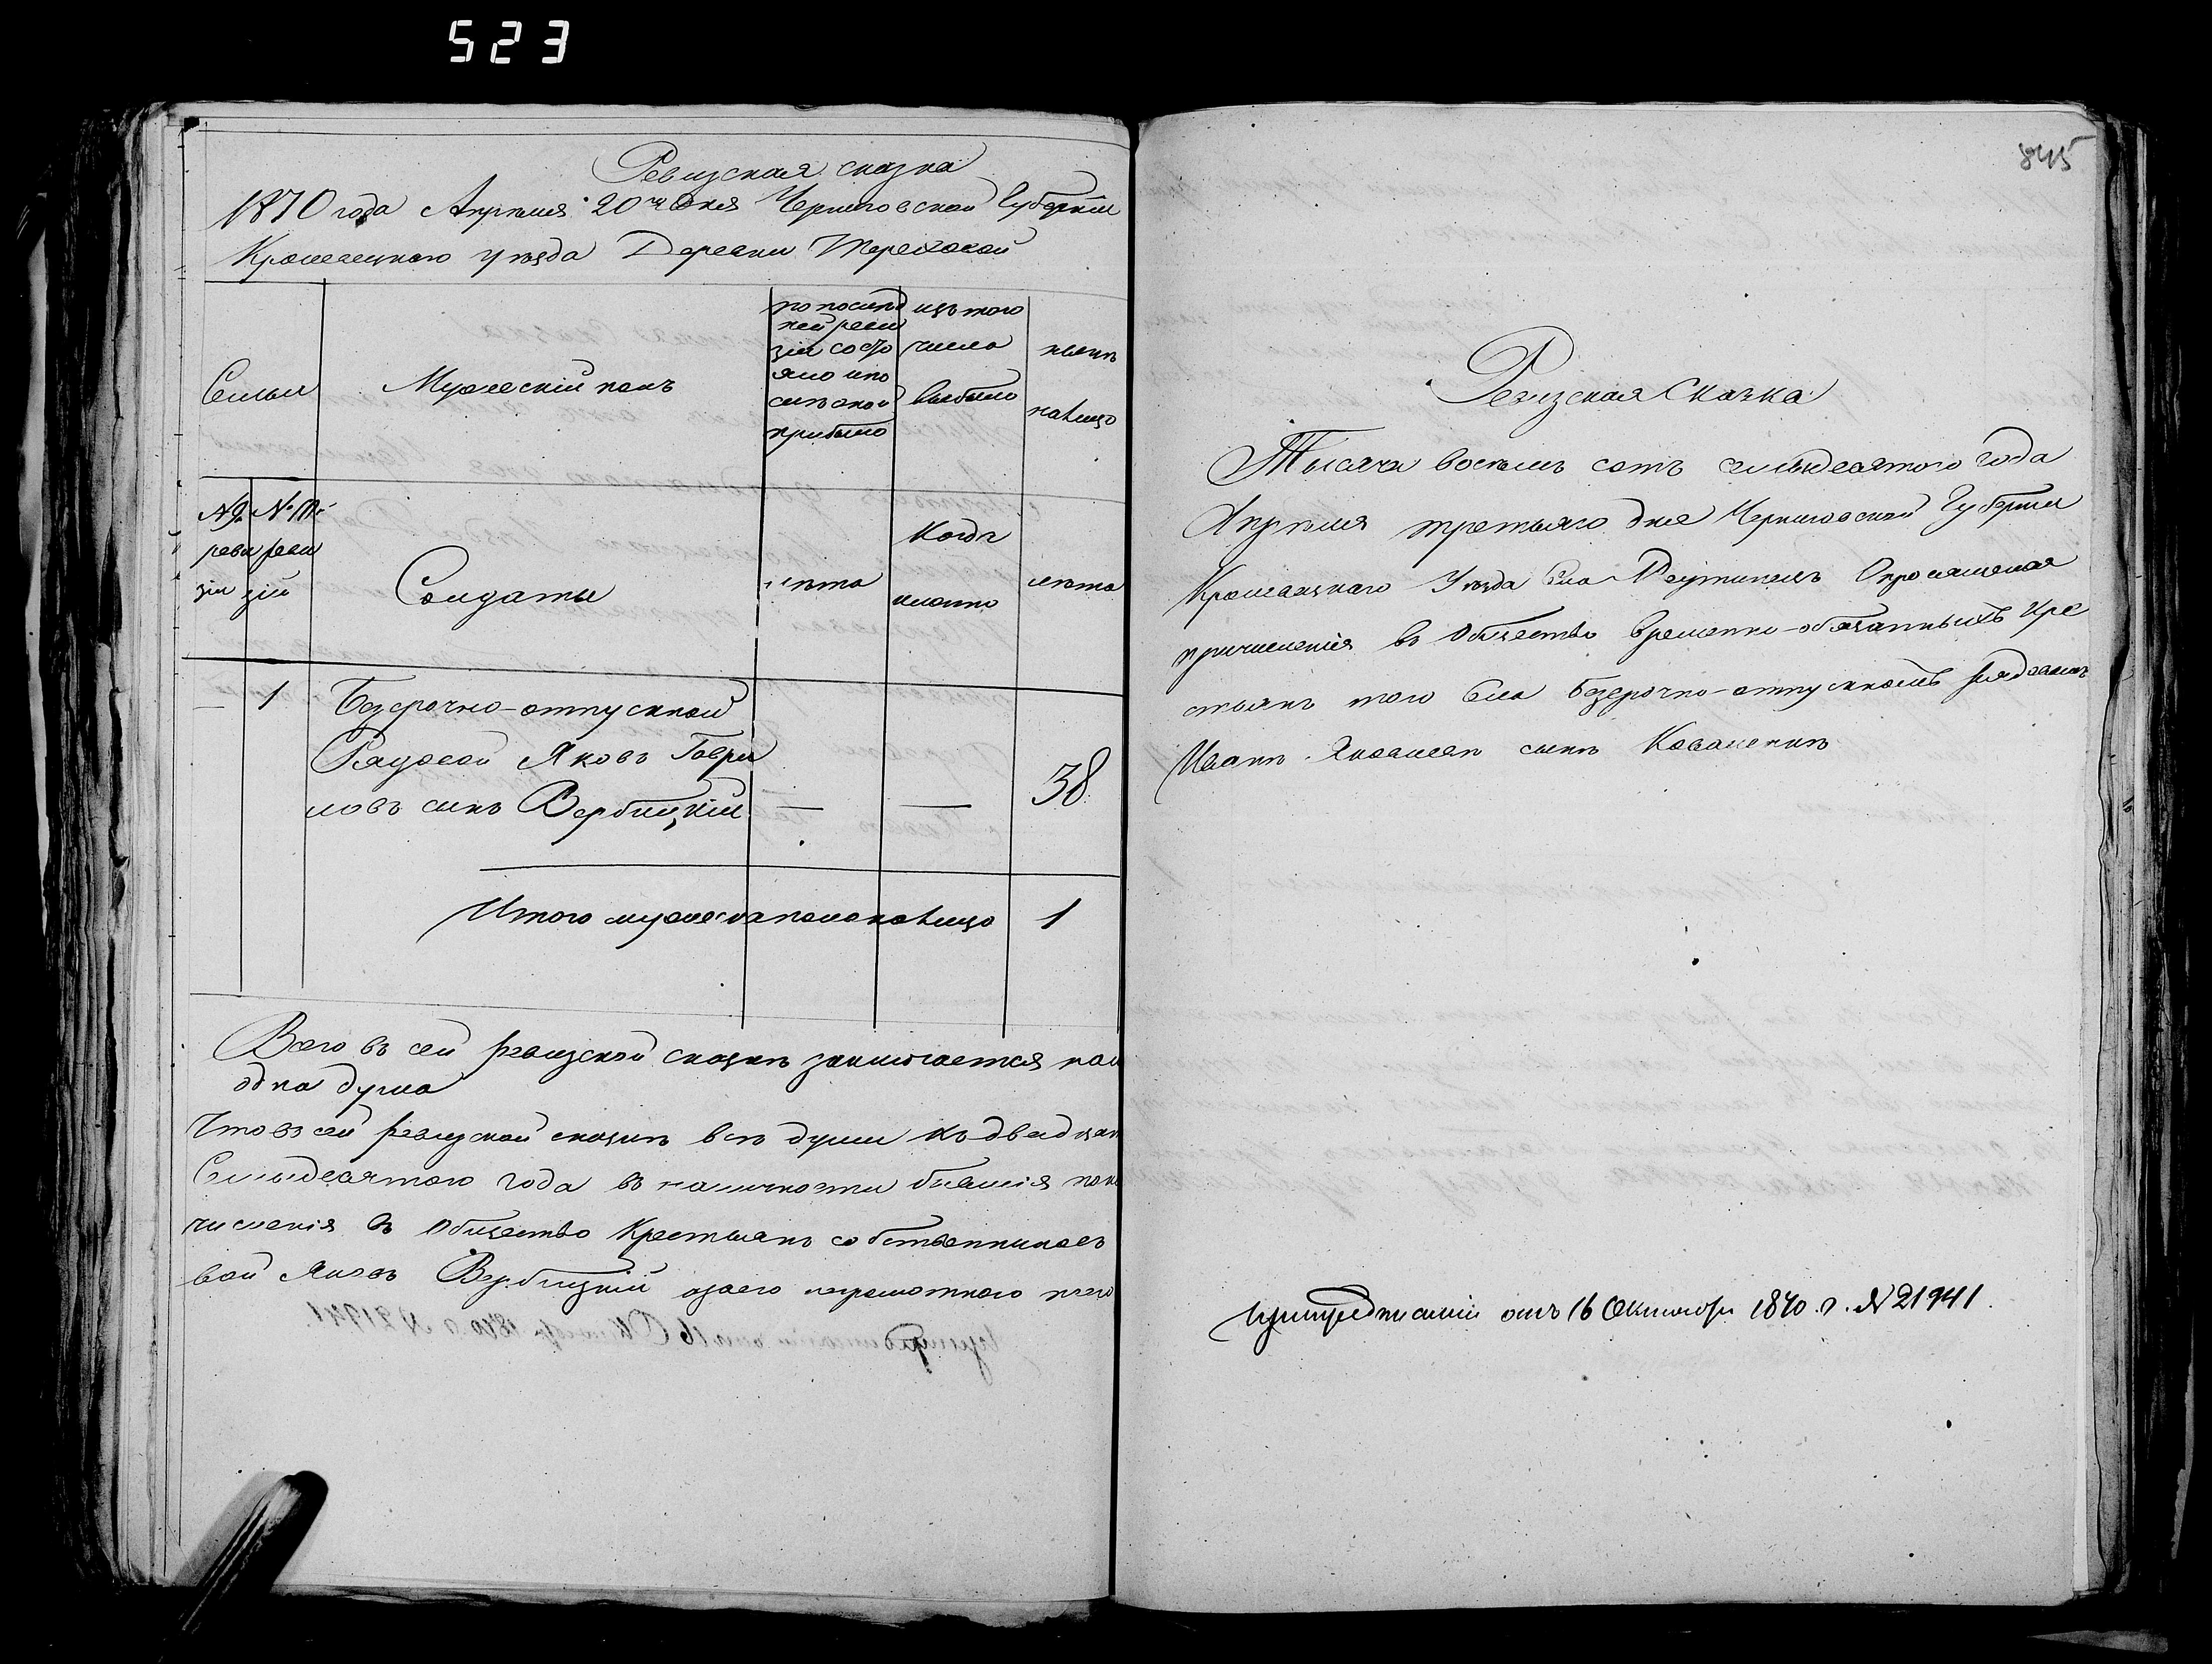 523
Ревизская сказка
1870 года Апреля 20го дня Черниговской Губернии
Кролевецкаго уезда Деревни Тереховой
Семьи
Мужескій полъ
по послед
ней реви
зіи состо
яло и по
сле оной
прибыло
изъ того
числа
выбыло
ныне
налицо
№ 9й
реви
зіи
№ 10й
реви
зіи
Солдаты
лета
Когда
имянно
лета
— 1 Безсрочно-отпускной
Рядовой Яковъ Гаври
ловъ сынъ Вербицкій — — 38
Итого мужеска пола на лицо 1
Всего въ сей ревизской сказкѣ заключается
одна душа
Что въ сей ревизской сказкѣ всѣ души
Семьдесятого года въ наличности бывшія
численія въ Общество Крестьянъ собственниковъ
вой Яковъ Вербицкій неграмотного
845
Ревизская Сказка
Тысяча восемь сотъ семьдесятого года
Апрѣля третьяго дня Черниговской Губерніи
Кролевецкаго Уезда Села Реутинецъ
причисленія въ Общество временно-обязанныхъ кре
стьянъ того Села безсрочно-отпускной рядовой
Иванъ Яковлевъ сынъ Коваленко
при предписаніи отъ 16 Октября 1870 г. № 21941.